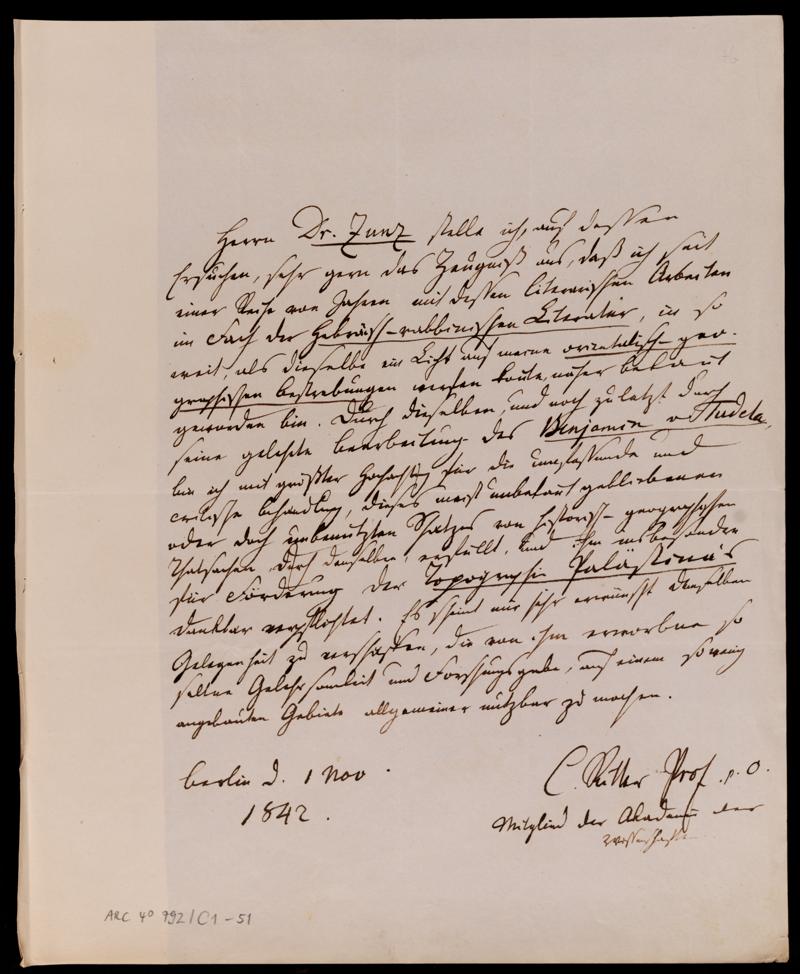 Herrn Dr. Zunz stelle ich, auf dessen
Ersuchen, sehr gern das Zeugniß aus, daß ich seit
einer Reihe von Jahren mit dessen literarischen Arbeiten
im Fach der Hebräisch-rabbinischen Literatur, in so
weit, als dieselbe ein Licht auf meine orientalisch-geo-
graphischen Bestrebungen werfen konte, näher bekant
geworden bin. Durch dieselben, und noch zuletzt durch
seine gelehrte Bearbeitung des Benjamin v. Tudela,
bin ich mit größter Hochachtg für die umfassende und
critische Behandlung, dieses meist unbekant gebliebenen
oder doch unbenutzten Schatzes von historisch-geographischen
Thatsachen, durch denselben, erfüllt, und ihm insbesondre
für Förderung der Topographie Palästina's
dankbar verpflichtet. Es scheint mir sehr erwünscht demselben
Gelegenheit zu verschaffen, die von ihm erworbne so
seltne Gelehrsamkeit und Forschungsgabe, auf einem so wenig
angebauten Gebiete allgemeiner nutzbar zu machen.
Berlin d. 1 Nov.
1842.
C. Ritter Prof. p. O.
Mitglied der Akademie der
Wissenschaften
ARC 4° 792/C1-51